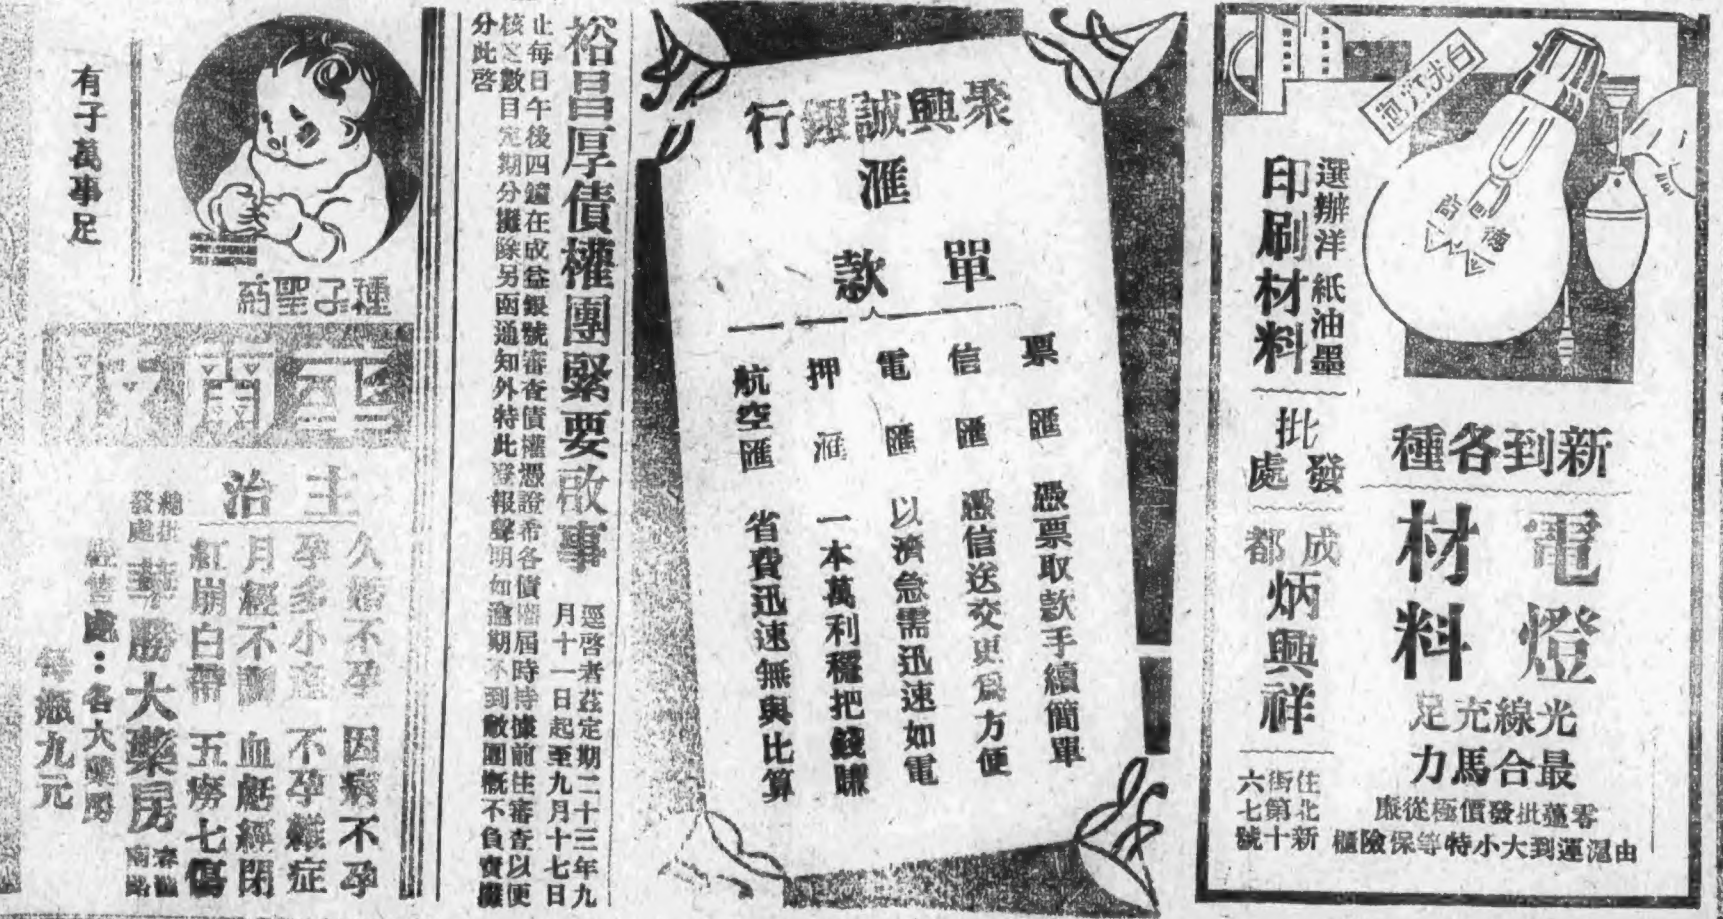 新到各種
電燈
材料
光線充足
最合馬力
零躉批發價極從廉
由滬運到大小特等保險櫃
選辦洋紙油墨
印刷材料
批發處
成都
炳興祥
住北新街第十六七號
聚興誠銀行
滙
單
款
票匯 憑票取款手續簡單
信匯 憑信送交更爲方便
電匯 以濟急需迅速如電
押滙 一本萬利穩把錢賺
航空匯 省費迅速無與比算
裕昌厚債權團緊要啟事
逕啓者茲定期二十三年九
月十一日起至九月十七日
止每日午後四鐘在成益銀號審查債權憑證希各債權屆時持據前往審查以便
核定數目定期分攤除另函通知外特此登報聲明如逾期不到敝團概不負責攤
分此啓
有子萬事足
種子聖葯
主治
久婚不孕 因病不孕
孕多小產 不孕雜症
月經不調 血虧經閉
紅崩白帶 五癆七傷
總批發處 華勝大藥房
經售處：各大藥房
每瓶九元